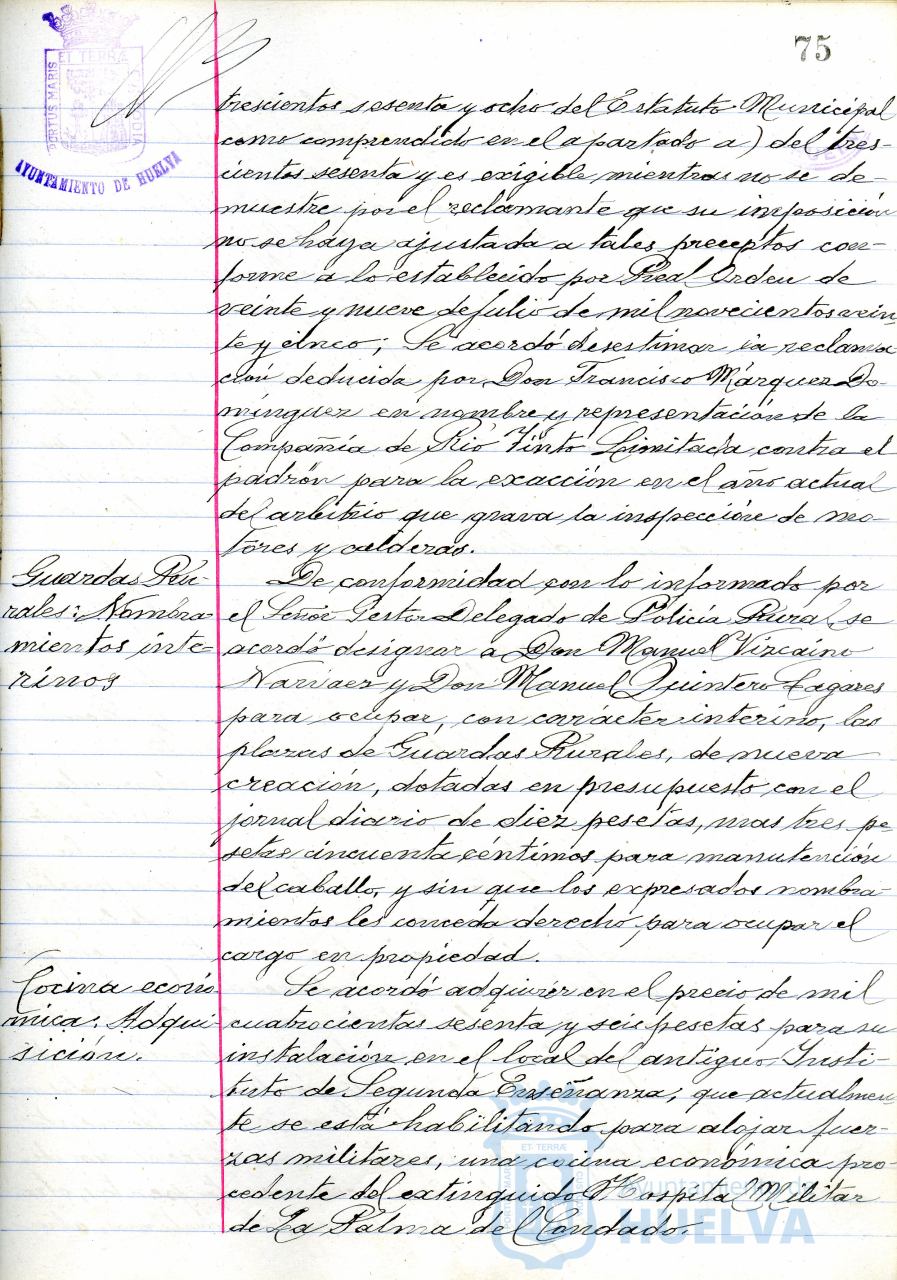 75
ET TERRÆ
PORTUS MARIS
CUSTODIA
AYUNTAMIENTO DE HUELVA
trescientos sesenta y ocho del Estatuto Municipal
como comprendido en el apartado a) del tres-
cientos sesenta y es exigible mientras no se de-
muestre por el reclamante que su imposición
no se haya ajustada a tales preceptos con-
forme a lo establecido por Real Orden de
veinte y nueve de julio de mil novecientos vein-
te y cinco; Se acordó desestimar la reclama-
ción deducida por Don Francisco Márquez Do-
mínguez en nombre y representación de la
Compañía de Rio Tinto Limitada contra el
padrón para la exacción en el año actual
del arbitrio que grava la inspección de mo-
tores y calderas.
Guardas Ru-
rales: Nombra-
mientos inte-
rinos
De conformidad con lo informado por
el Señor Gestor Delegado de Policía Rural, se
acordó designar a Don Manuel Vizcaino
Narvaez y Don Manuel Quintero Cagares
para ocupar, con carácter interino, las
plazas de Guardas Rurales, de nueva
creación, dotadas en presupuesto con el
jornal diario de diez pesetas, mas tres pe-
setas cincuenta céntimos para manutención
del caballo, y sin que los expresados nombra-
mientos les conceda derecho para ocupar el
cargo en propiedad.
Cocina econó-
mica: Adqui-
sición.
Se acordó adquirir en el precio de mil
cuatrocientas sesenta y seis pesetas para su
instalación en el local del antiguo Insti-
tuto de Segunda Enseñanza; que actualmen-
te se está habilitando para alojar fuer-
zas militares, una cocina económica pro-
cedente del extinguido Hospital Militar
de La Palma del Condado.
ET TERRÆ
Ayuntamiento de
HUELVA